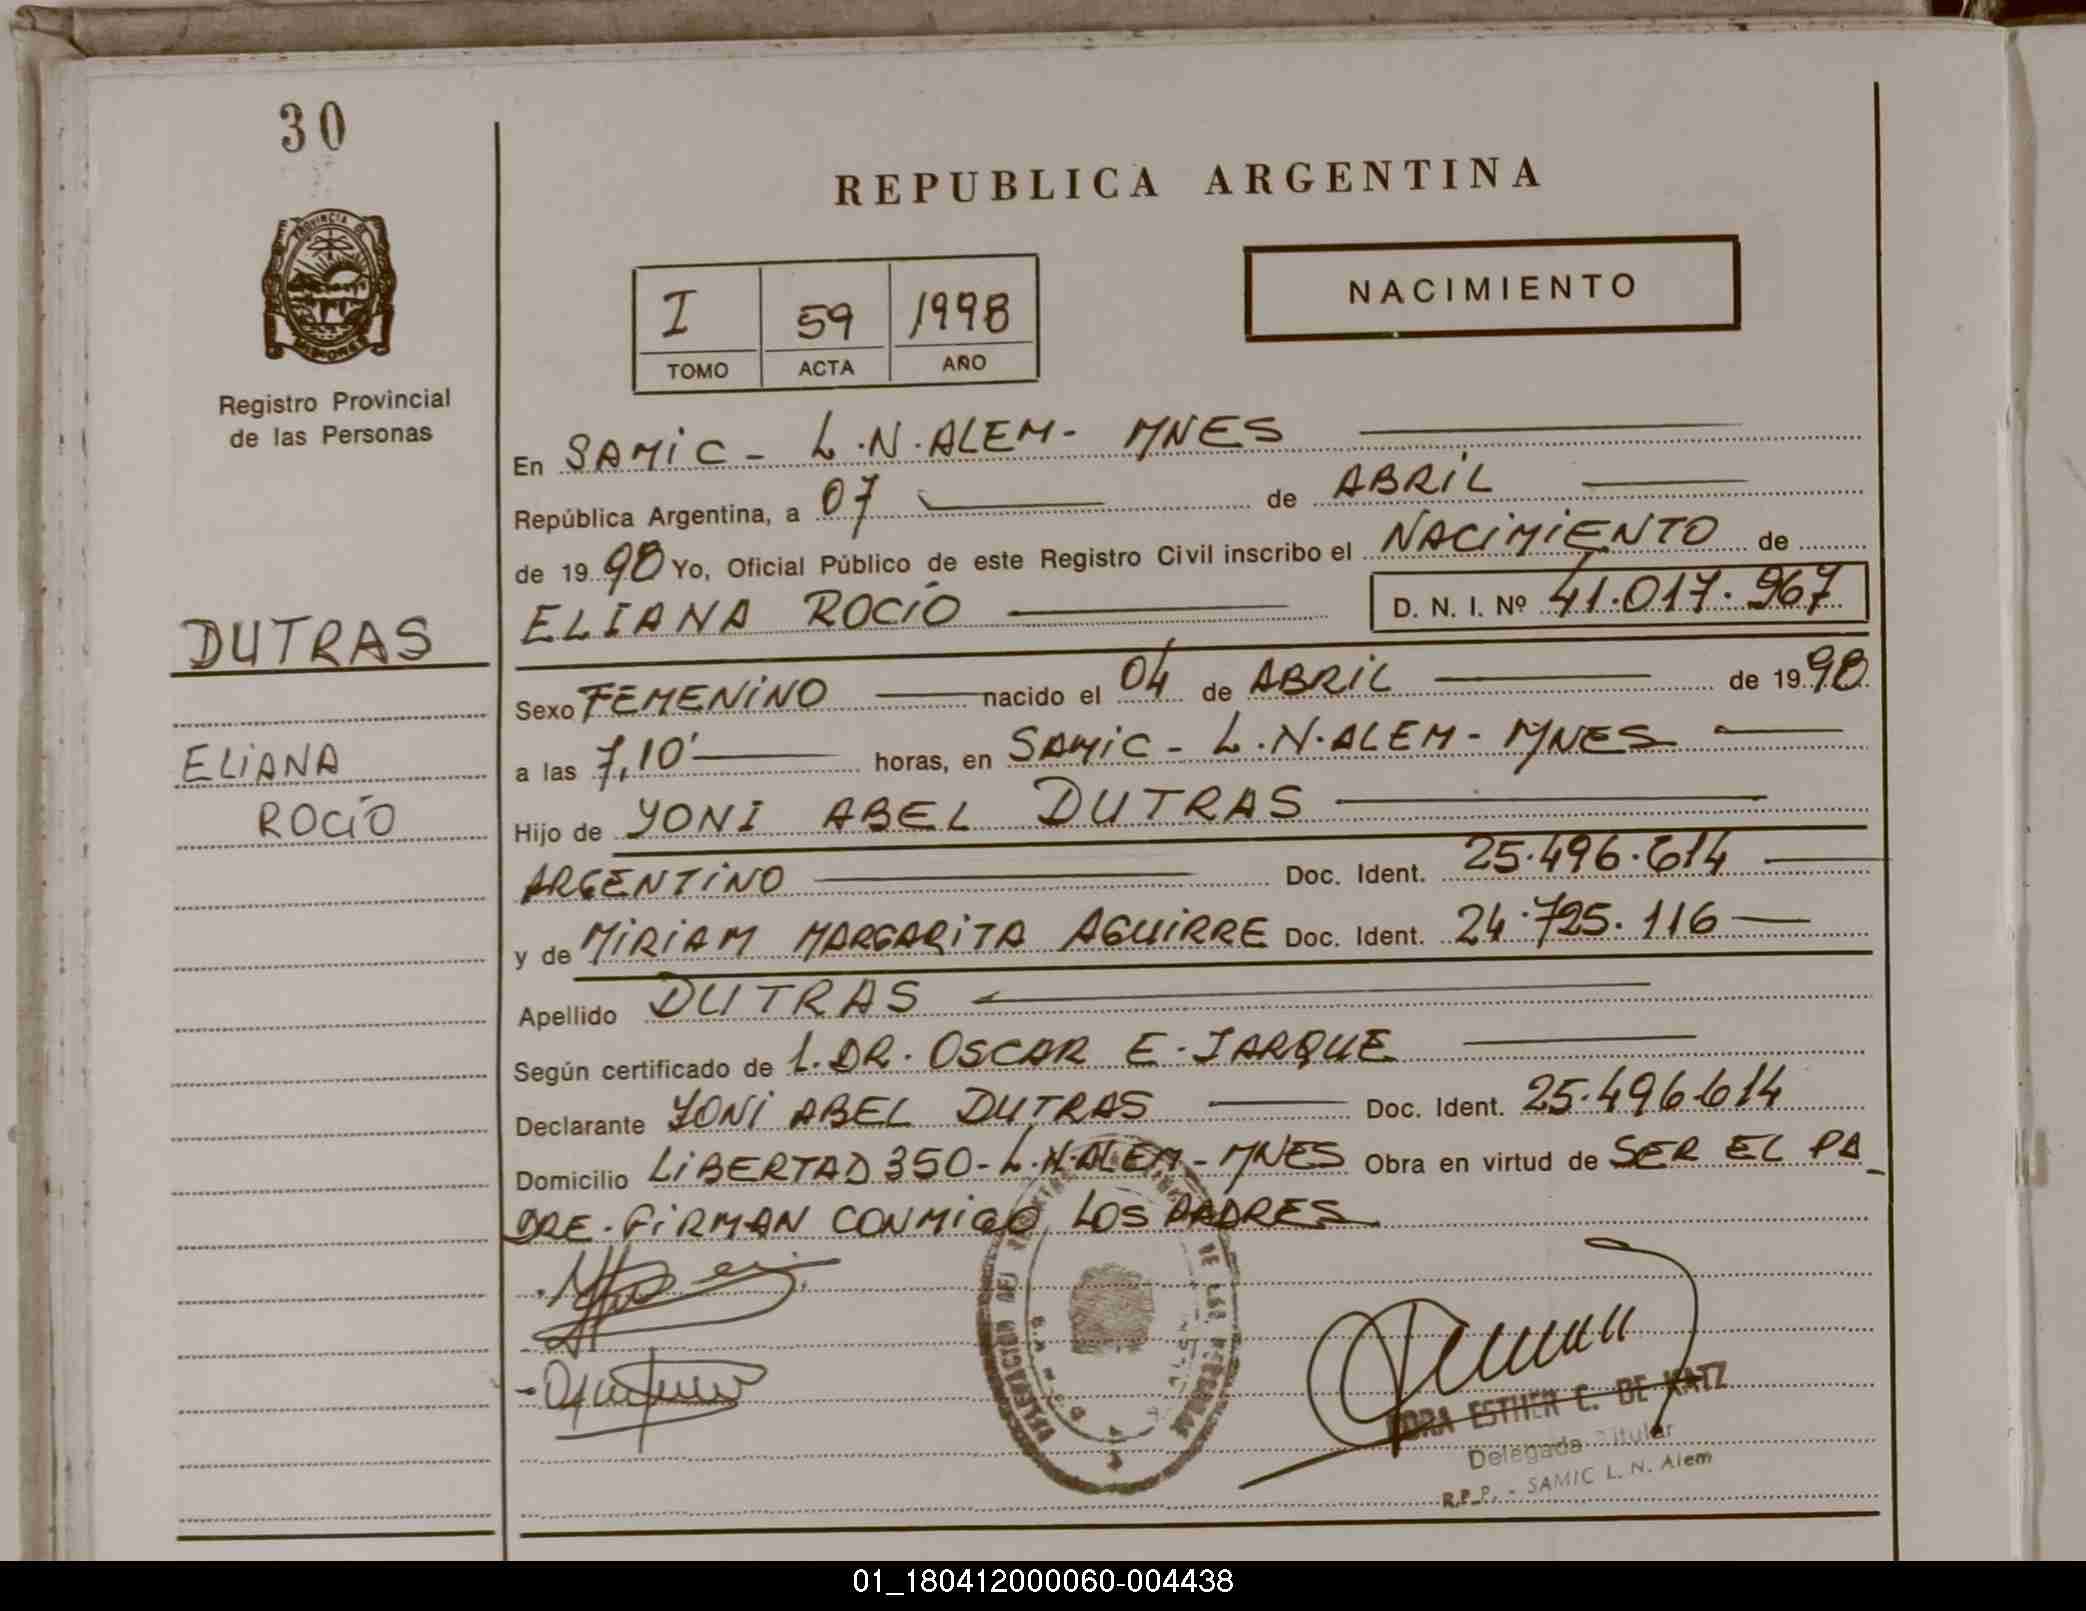 30
REPUBLICA ARGENTINA
PROVINCIA DE
MISIONES
Registro Provincial
de las Personas
I 59 1998
TOMO ACTA AÑO
NACIMIENTO
En SAMIC - L.N. ALEM - MNES
República Argentina, a 07 de ABRIL
de 1998 Yo, Oficial Público de este Registro Civil inscribo el NACIMIENTO de
ELIANA ROCIO D. N. I. Nº 41.017.967
DUTRAS
ELIANA
ROCÍO
Sexo FEMENINO nacido el 04 de ABRIL de 1998
a las 7,10' horas, en SAMIC - L.N. ALEM - MNES
Hijo de YONI ABEL DUTRAS
ARGENTINO Doc. Ident. 25.496.614
y de MIRIAM MARGARITA AGUIRRE Doc. Ident. 24.725.116
Apellido DUTRAS
Según certificado de L. DR. OSCAR E. JARQUE
Declarante YONI ABEL DUTRAS Doc. Ident. 25.496.614
Domicilio LIBERTAD 350 - L.N. ALEM - MNES Obra en virtud de SER EL PA_
DRE. FIRMAN CONMIGO LOS PADRES
DE LAS PERSONAS
DORA ESTHER C. DE KATZ
Delegada Titular
R.P.P. - SAMIC L. N. Alem
01_180412000060-004438